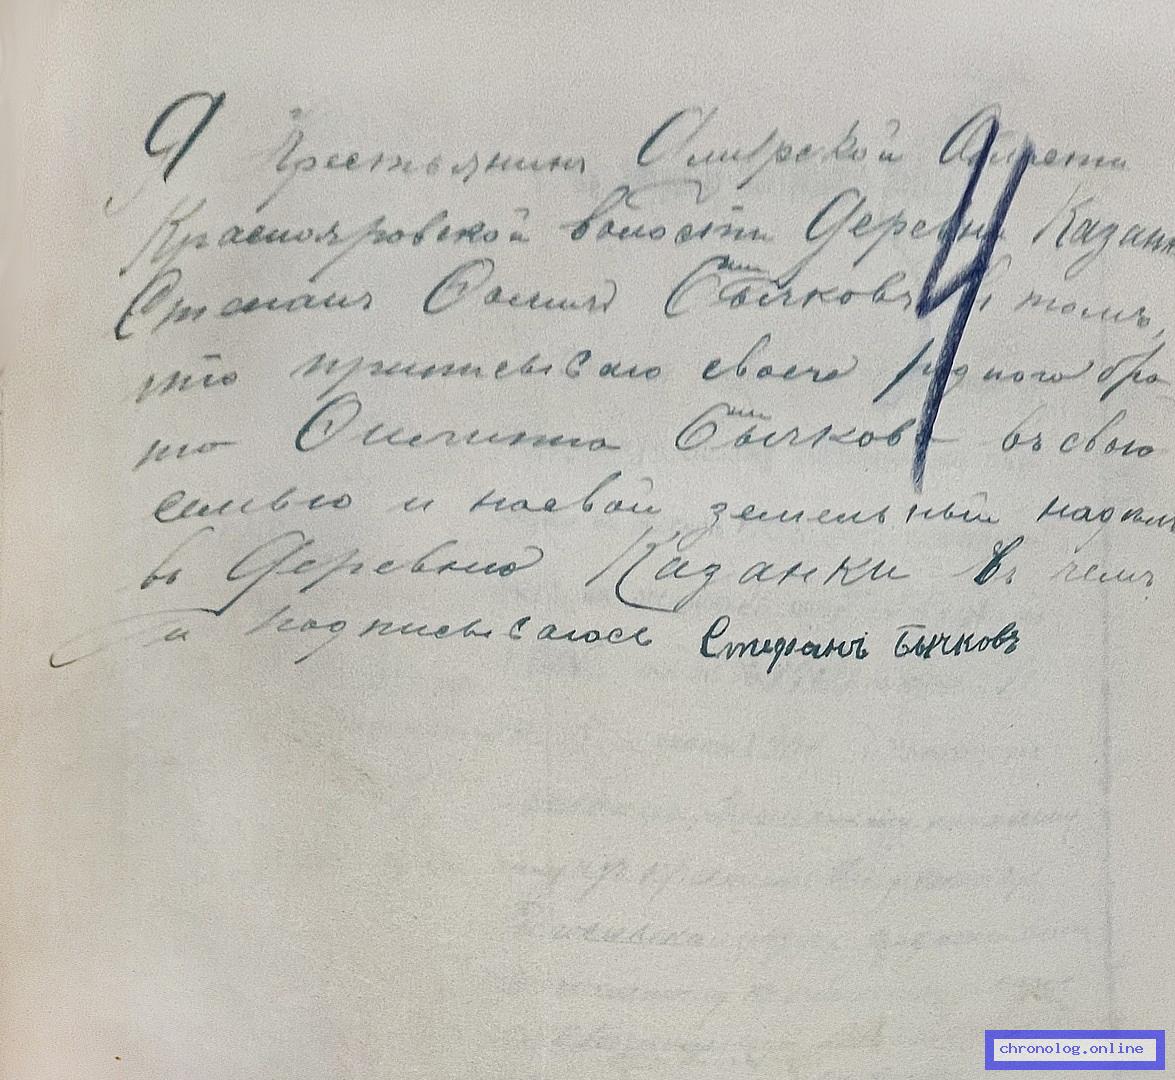 Я Крестьянинъ Амурской Области
Краснояровской волости Деревни Казанк
Степанъ Фомичъ Бычковъ въ томъ,
что приписываю своего родного бра
та Бычкова въ свою
семью и на свой земельный надѣлъ
въ Деревню Казанки въ чемъ
и подписываюсь Степанъ Бычковъ
4
chronolog.online